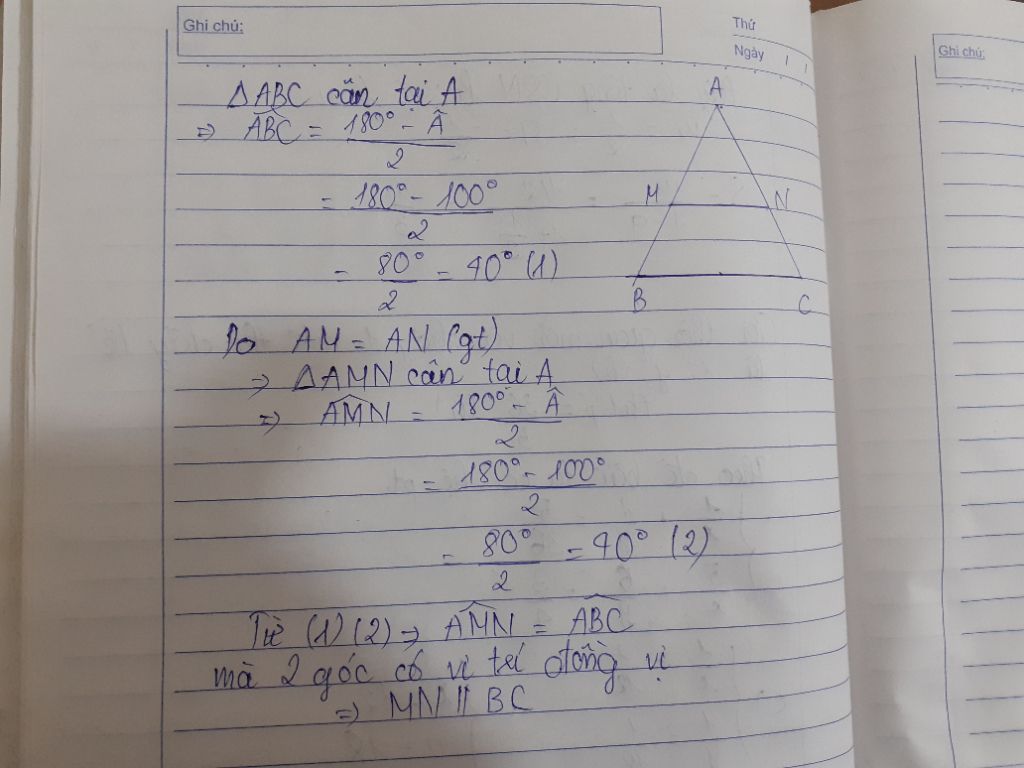 Ghi chú:
Thứ
Ngày / /
Ghi chú:
ΔABC cân tại A
⇒ ABC = (180° - Â)/2
= (180° - 100°)/2
= 80°/2 = 40° (1)
A
M N
B C
Do AM = AN (gt)
⇒ ΔAMN cân tại A
⇒ \widehat{AMN} = (180° - Â)/2
= (180° - 100°)/2
= 80°/2 = 40° (2)
Từ (1) (2) ⇒ \widehat{AMN} = \widehat{ABC}
mà 2 góc có vị trí đồng vị
⇒ MN // BC